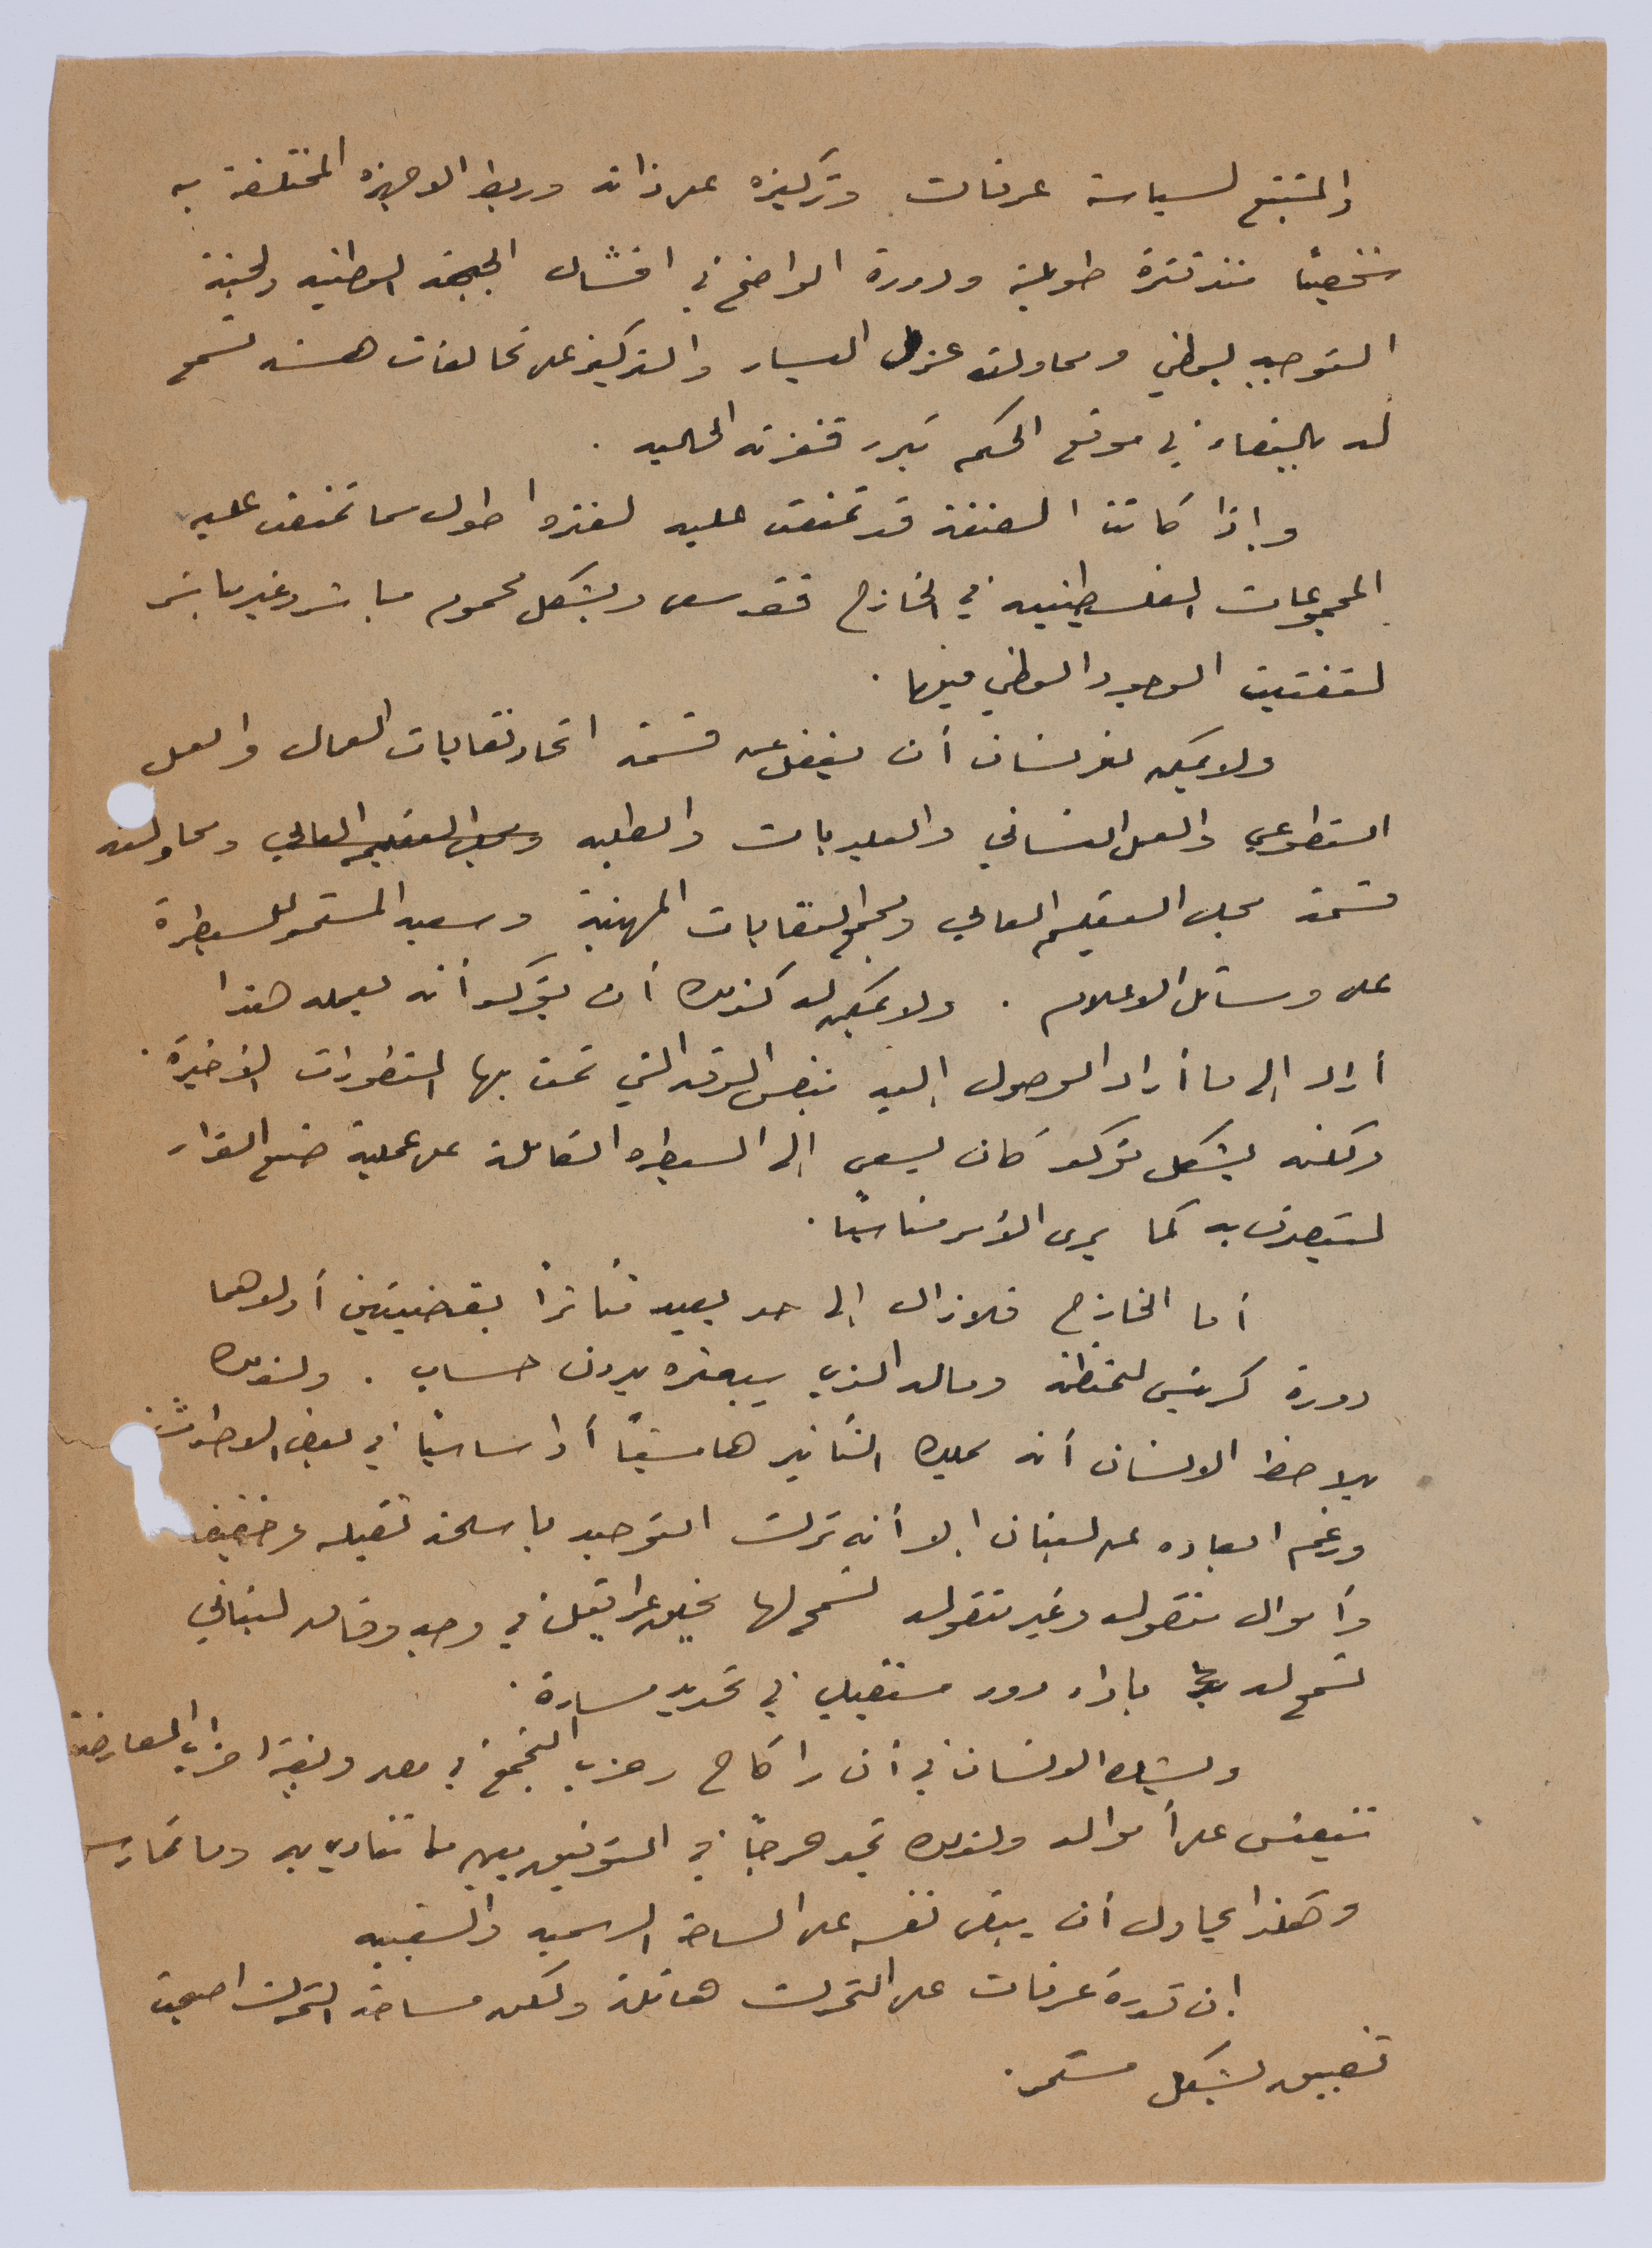 والمتتبع لسياسة عرفات وتركيزه على ذاته وربط الاجهزه المختلفة به
شخصياً منذ فترة طويلة ودورة الواضح في افشال الجبهة الوطنيه ولجنة
التوجيه الوطني ومحاولته عزل اليسار والتركيز على تحالفات هشه تسمح
له بالبقاء في موقع الحكم تبرر قفزته الحاليه .
وإذا كانت الضفة قد تمنعت عليه لفتره اطول مما تمنعت عليه
المجموعات الفلسطينيه في الخارج فقد سعى وبشكل محموم مباشر وغير مباشر
لتفتيت الوجود الوطني فيها .
ولا يمكن لإنسان أن يغفل عن قسمة اتحاد نقابات العمال والعمل
التطوعي والعمل النسائي والبلديات والطلبه ومجلس التعليم العالي ومحاولته
قسمة مجلس التعليم العالي ومجمع النقابات المهنية وسعيه المستمر للسيطرة
على وسائل الاعلام . ولا يمكن له كذلك أن يؤكد أنه بعمله هذا
أراد إلى ما أراد الوصول إليه بنفس الدقه التي تمت بها التطورات الأخيرة .
ولكنه بشكل مؤكد كان يسعى إلى السيطره الكاملة على عملية صنع القرار
ليتصرف به كما يرى الأمر مناسباً .
أما الخارج فلا زال إلى حد بعيد متأثراً بقضيتين أولاهما
دورة كرئيس للمنظمة وماله الذي يبعثره بدون حساب . ولذلك
يلاحظ الانسان أنه يملك التأثير هامشياً أو أساسياً في بعض الاحداث
ورغم ابعاده عن لبنان إلا أنه ترك التوحيد بأسلحة ثقيله وخفيفه
وأموال منقوله وغير منقوله تسمح لها بخلق عراقيل في وجه وفاق لبناني
تسمح له بأداء دور مستقبلي في تحديد مساره .
ويشك الانسان في أن راكاح وحزب التجمع في مصر وبقية احزاب المعارضة
تتعيش على أمواله ولذلك تجد حرجاً في التوفيق بين ما تنادي به وما تمارسه
وهكذا يحاول أن يبقى نفسه على الساحة الرسميه والشعبيه
إن قدرة عرفات على التحرك هائلة ولكن مساحة التحرك اصبحت
تضيق بشكل مستمر .